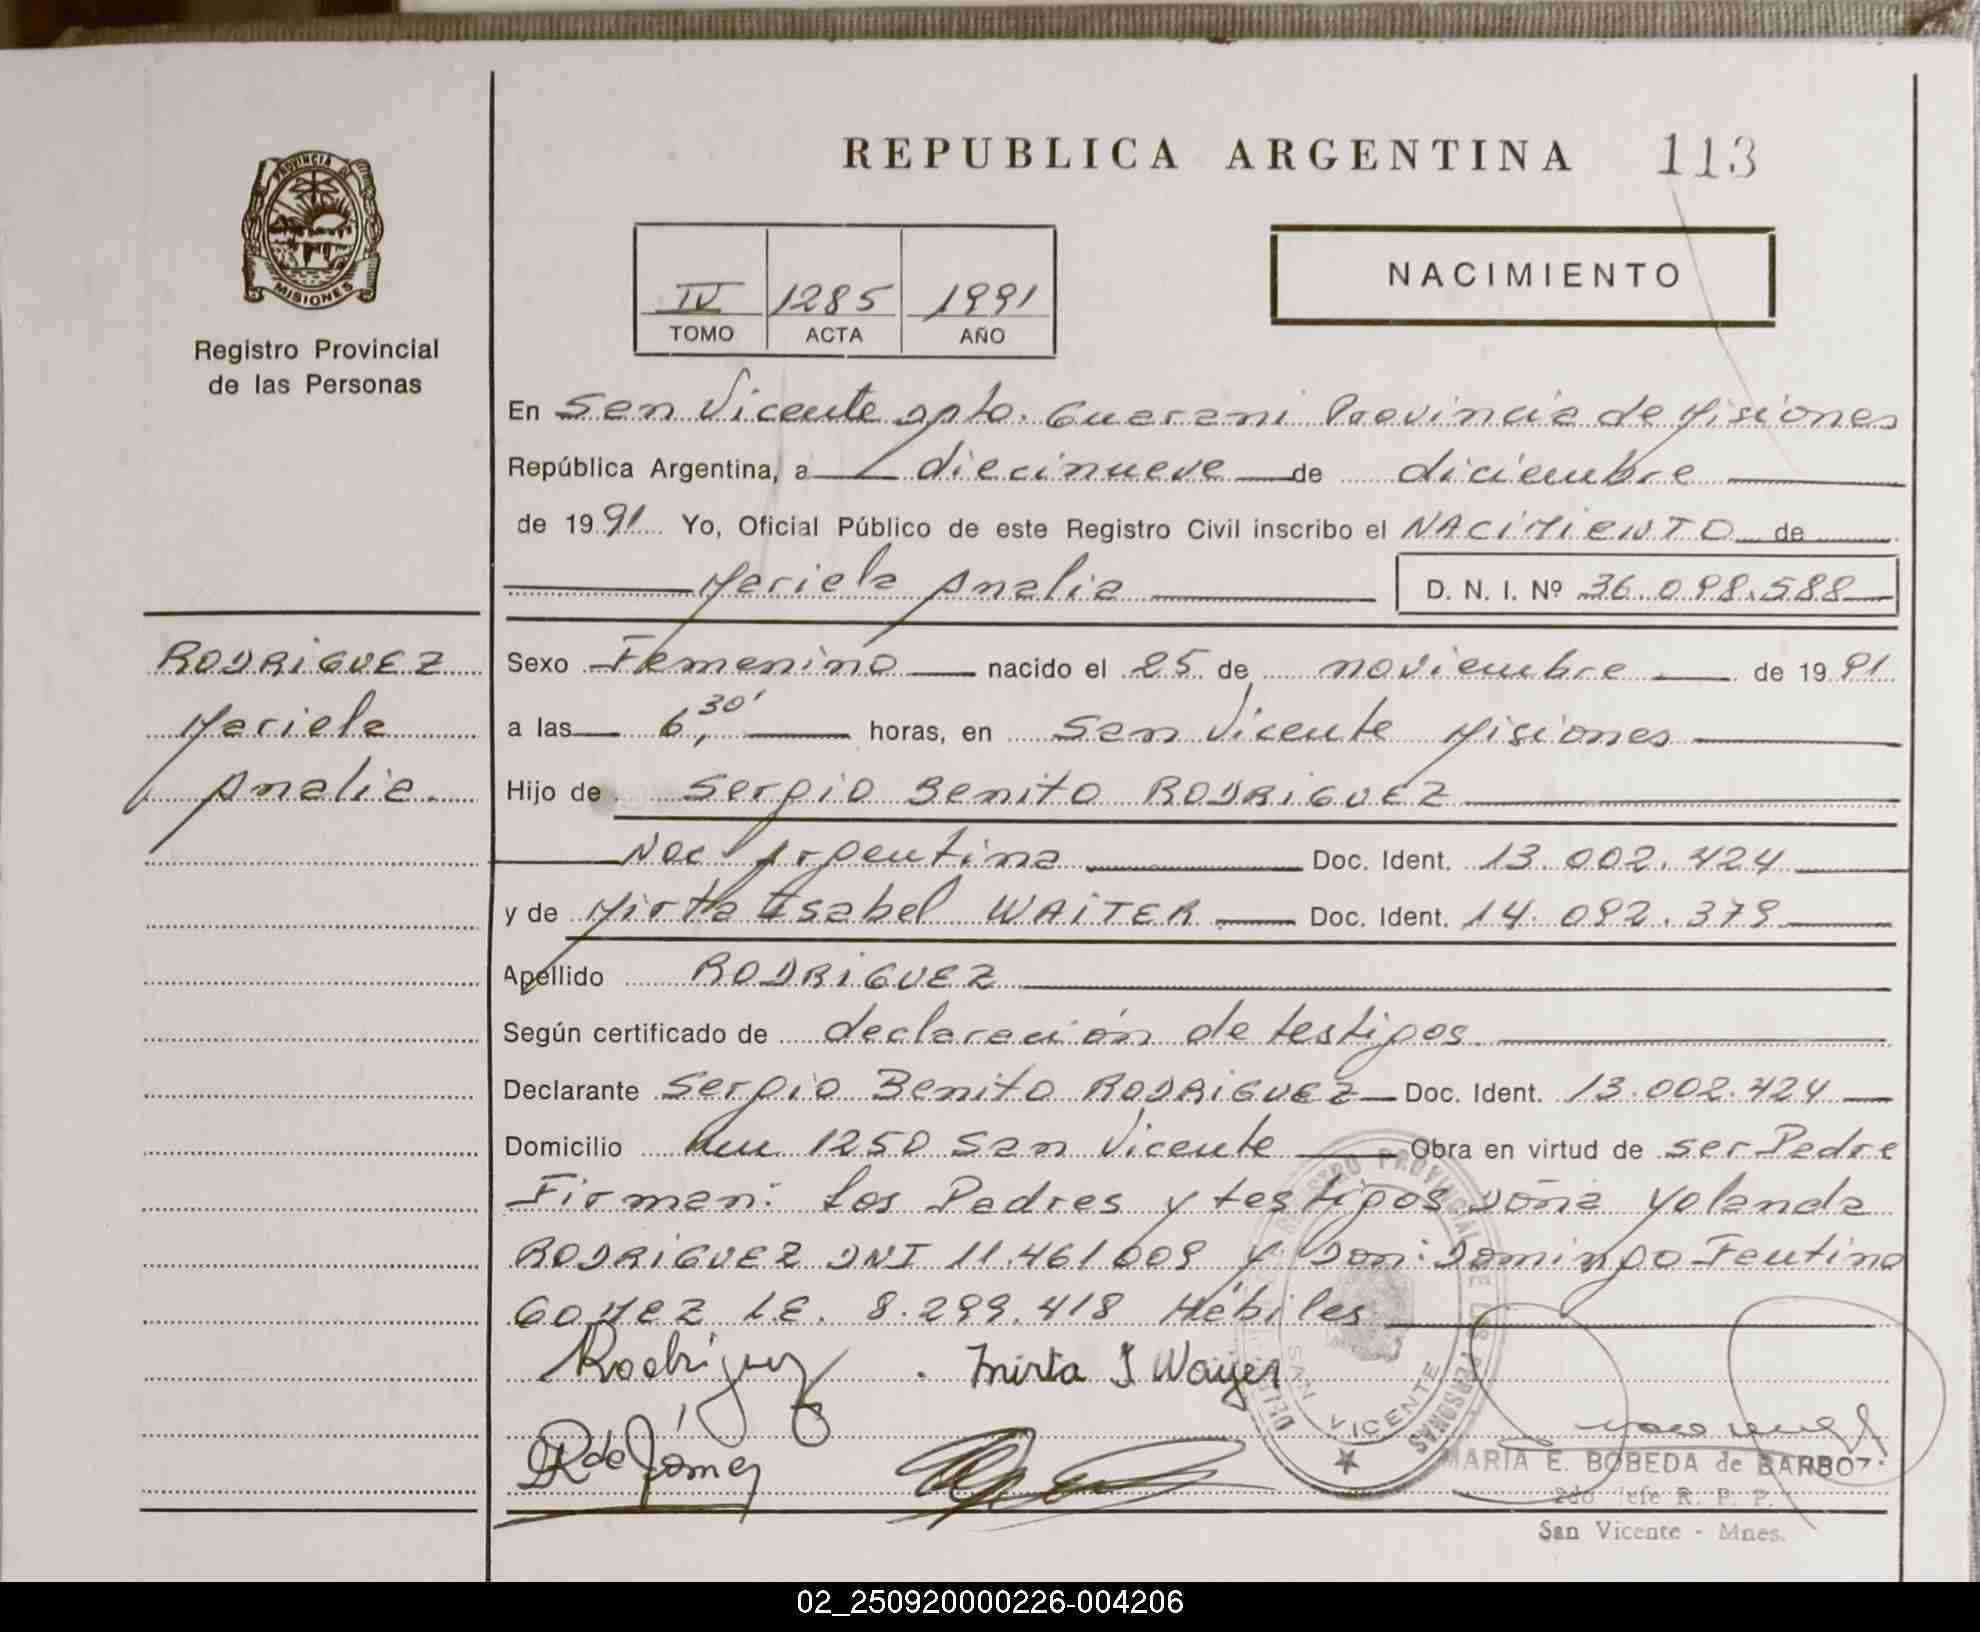 REPUBLICA ARGENTINA 113
PROVINCIA DE
MISIONES
Registro Provincial
de las Personas
NACIMIENTO
IV 1285 1991
TOMO ACTA AÑO
En San Vicente Dpto. Guarani Provincia de Misiones
República Argentina, a diecinueve de diciembre
de 1991 Yo, Oficial Público de este Registro Civil inscribo el NACIMIENTO de
Mariela Analia D. N. I. Nº 36.098.588
RODRIGUEZ
Mariela
Analia.
Sexo Femenino nacido el 25 de noviembre de 1991
a las 6,30' horas, en San Vicente Misiones
Hijo de Sergio Benito RODRIGUEZ
Nac Argentina Doc. Ident. 13.002.424
y de Mirta Isabel WAITER Doc. Ident. 14.092.379
Apellido RODRIGUEZ
Según certificado de declaración de testigos.
Declarante Sergio Benito RODRIGUEZ Doc. Ident. 13.002.424
Domicilio km 1250 San Vicente Obra en virtud de ser Padre
Firman: Los Padres y testigos Doña Yolanda
RODRIGUEZ DNI 11.461.009 y Don: Domingo Feutino
GOMEZ L.E. 8.299.418 Hábiles
Rodriguez . Mirta I Wayer
R de Gómez
REGISTRO PROVINCIAL DE LAS PERSONAS
SAN VICENTE
MARIA E. BOBEDA de BARBOZ
2do Jefe R. P. P.
San Vicente - Mnes.
02_250920000226-004206